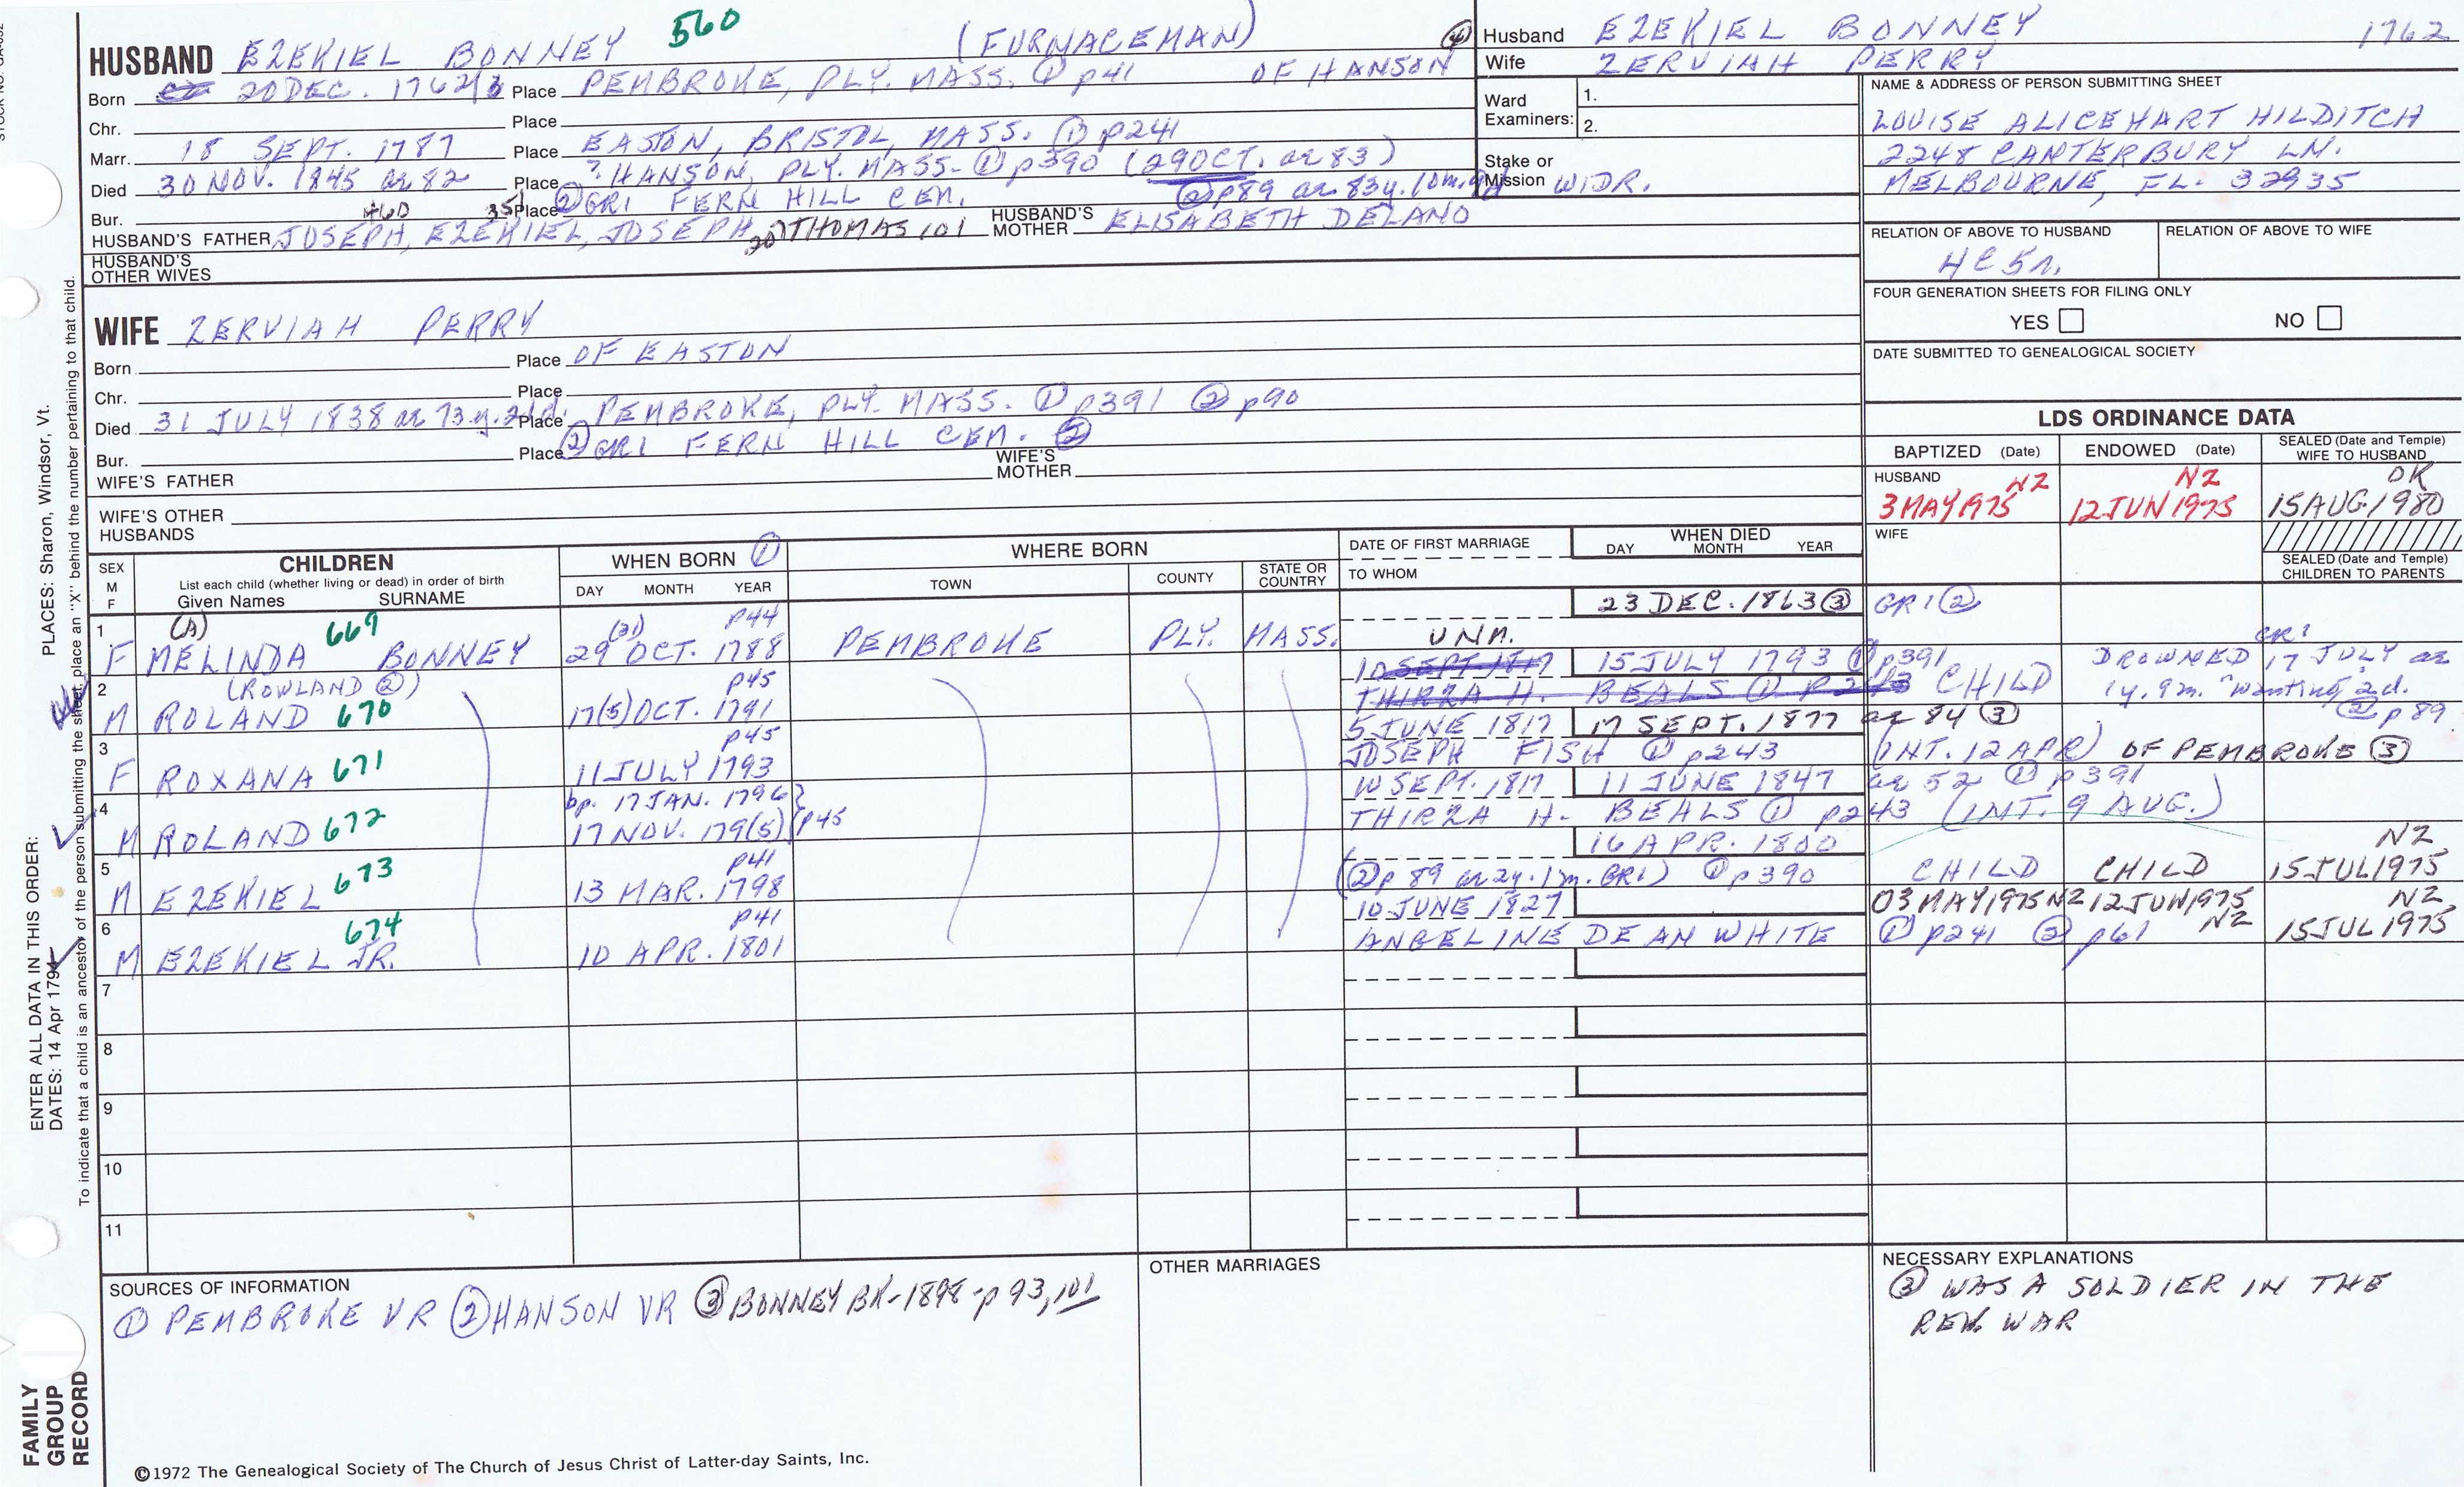 HUSBAND EZEKIEL BONNEY 560 (FURNACEMAN) ④
Born 20 DEC. 1762/3 Place PEMBROKE, PLY. MASS. ① p41 OF HANSON
Chr. Place
Marr. 18 SEPT. 1787 Place EASTON, BRISTOL, MASS. ① p241
Died 30 NOV. 1845 ae 82 Place ? HANSON, PLY. MASS- ① p390 (29 OCT. ae 83)
Bur. Place ② GR1 FERN HILL CEM. ② p89 ae 83y. 10m.
460 35
HUSBAND'S FATHER JOSEPH, EZEKIEL, JOSEPH, 20 THOMAS 101 HUSBAND'S MOTHER ELISABETH DELANO
HUSBAND'S OTHER WIVES
Husband EZEKIEL BONNEY 1762
Wife ZERVIAH PERRY
Ward Examiners: 1.
2.
Stake or Mission WIDR.
NAME & ADDRESS OF PERSON SUBMITTING SHEET
LOUISE ALICE HART HILDITCH
2248 CANTERBURY LN.
MELBOURNE, FL. 32935
RELATION OF ABOVE TO HUSBAND RELATION OF ABOVE TO WIFE
4C5r.
FOUR GENERATION SHEETS FOR FILING ONLY
YES NO
DATE SUBMITTED TO GENEALOGICAL SOCIETY
WIFE ZERVIAH PERRY
Born Place OF EASTON
Chr. Place
Died 31 JULY 1838 ae 73.y. 21d. Place PEMBROKE, PLY. MASS. ① p391 ② p90
Bur. Place ② GR1 FERN HILL CEM. ②
WIFE'S FATHER WIFE'S MOTHER
WIFE'S OTHER HUSBANDS
LDS ORDINANCE DATA
BAPTIZED (Date) ENDOWED (Date) SEALED (Date and Temple) WIFE TO HUSBAND
HUSBAND NZ NZ OK
3 MAY 1975 12 JUN 1975 15 AUG 1980
WIFE
SEALED (Date and Temple) CHILDREN TO PARENTS
SEX M F CHILDREN WHEN BORN ① WHERE BORN DATE OF FIRST MARRIAGE WHEN DIED
List each child (whether living or dead) in order of birth
Given Names SURNAME DAY MONTH YEAR TOWN COUNTY STATE OR COUNTRY TO WHOM DAY MONTH YEAR
1 (A) 669 (31) p44 23 DEC. 1863 ③ GR1 ②
F MELINDA BONNEY 29 OCT. 1788 PEMBROKE PLY. MASS. UNM.
2 (ROWLAND ②) p45 10 SEPT 1817 15 JULY 1793 ① p391 DROWNED 17 JULY ae CR1
M ROLAND 670 17(5) OCT. 1791 THIRZA H. BEALS ① p243 CHILD 1y. 9m. "wanting" 2d. ② p89
3 p45 5 JUNE 1817 17 SEPT. 1877 ae 84 ③
F ROXANA 671 11 JULY 1793 JOSEPH FISH ① p243 (INT. 12 APR) OF PEMBROKE ③
4 bp. 17 JAN. 1796 10 SEPT. 1817 11 JUNE 1847 ae 52 ① p391
M ROLAND 672 17 NOV. 179(5) p45 THIRZA H- BEALS ① p243 (INT. 9 AUG.)
5 p41 16 APR. 1800 NZ
M EZEKIEL 673 13 MAR. 1798 (② p 89 ae 2y. 1m. GR1) ① p390 CHILD CHILD 15 JUL 1975
6 674 p41 10 JUNE 1827 03 MAY 1975 NZ 12 JUN 1975 NZ NZ
M EZEKIEL JR. 10 APR. 1801 ANGELINE DEAN WHITE ① p241 ② p61 15 JUL 1975
7
8
9
10
11
SOURCES OF INFORMATION
① PEMBROKE VR ② HANSON VR ③ BONNEY BK-1898-p 93, 101
OTHER MARRIAGES
NECESSARY EXPLANATIONS
③ WAS A SOLDIER IN THE
REV. WAR
©1972 The Genealogical Society of The Church of Jesus Christ of Latter-day Saints, Inc.
FAMILY GROUP RECORD
ENTER ALL DATA IN THIS ORDER:
DATES: 14 Apr 1794
PLACES: Sharon, Windsor, Vt.
To indicate that a child is an ancestor of the person submitting the sheet, place an "X" behind the number pertaining to that child.